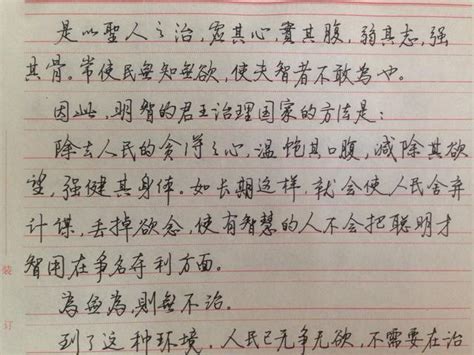 是以聖人之治，虛其心，實其腹，弱其志，强
其骨。常使民無知無欲，使夫智者不敢為也。
因此，明智的君王治理国家的方法是：
除去人民的贪得之心，温饱其口腹，减除其欲
望，强健其身体。如长期这样，就会使人民舍弃
计谋，丢掉欲念，使有智慧的人不会把聪明才
智用在争名夺利方面。
為無為，則無不治。
到了这种环境，人民已无争无欲，不需要在治
装
订